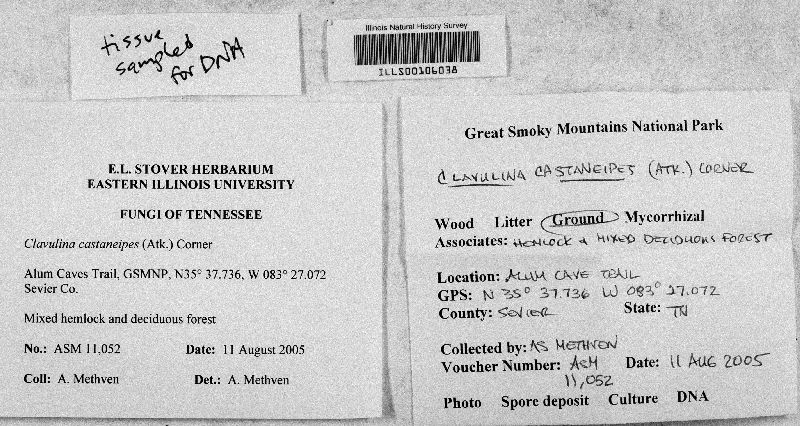 tissue
sampled
for DNA
Illinois Natural History Survey
ILLS00106038
E.L. STOVER HERBARIUM
EASTERN ILLINOIS UNIVERSITY
FUNGI OF TENNESSEE
Clavulina castaneipes (Atk.) Corner
Alum Caves Trail, GSMNP, N35° 37.736, W 083° 27.072
Sevier Co.
Mixed hemlock and deciduous forest
No.: ASM 11,052 Date: 11 August 2005
Coll: A. Methven Det.: A. Methven
Great Smoky Mountains National Park
CLAVULINA CASTANEIPES (ATK.) CORNER
Wood Litter Ground Mycorrhizal
Associates: HEMLOCK & MIXED DECIDUOUS FOREST
Location: ALUM CAVE TRAIL
GPS: N 35° 37.736 W 083° 27.072
County: SEVIER State: TN
Collected by: AS METHVEN
Voucher Number: ASM Date: 11 AUG 2005
11,052
Photo Spore deposit Culture DNA